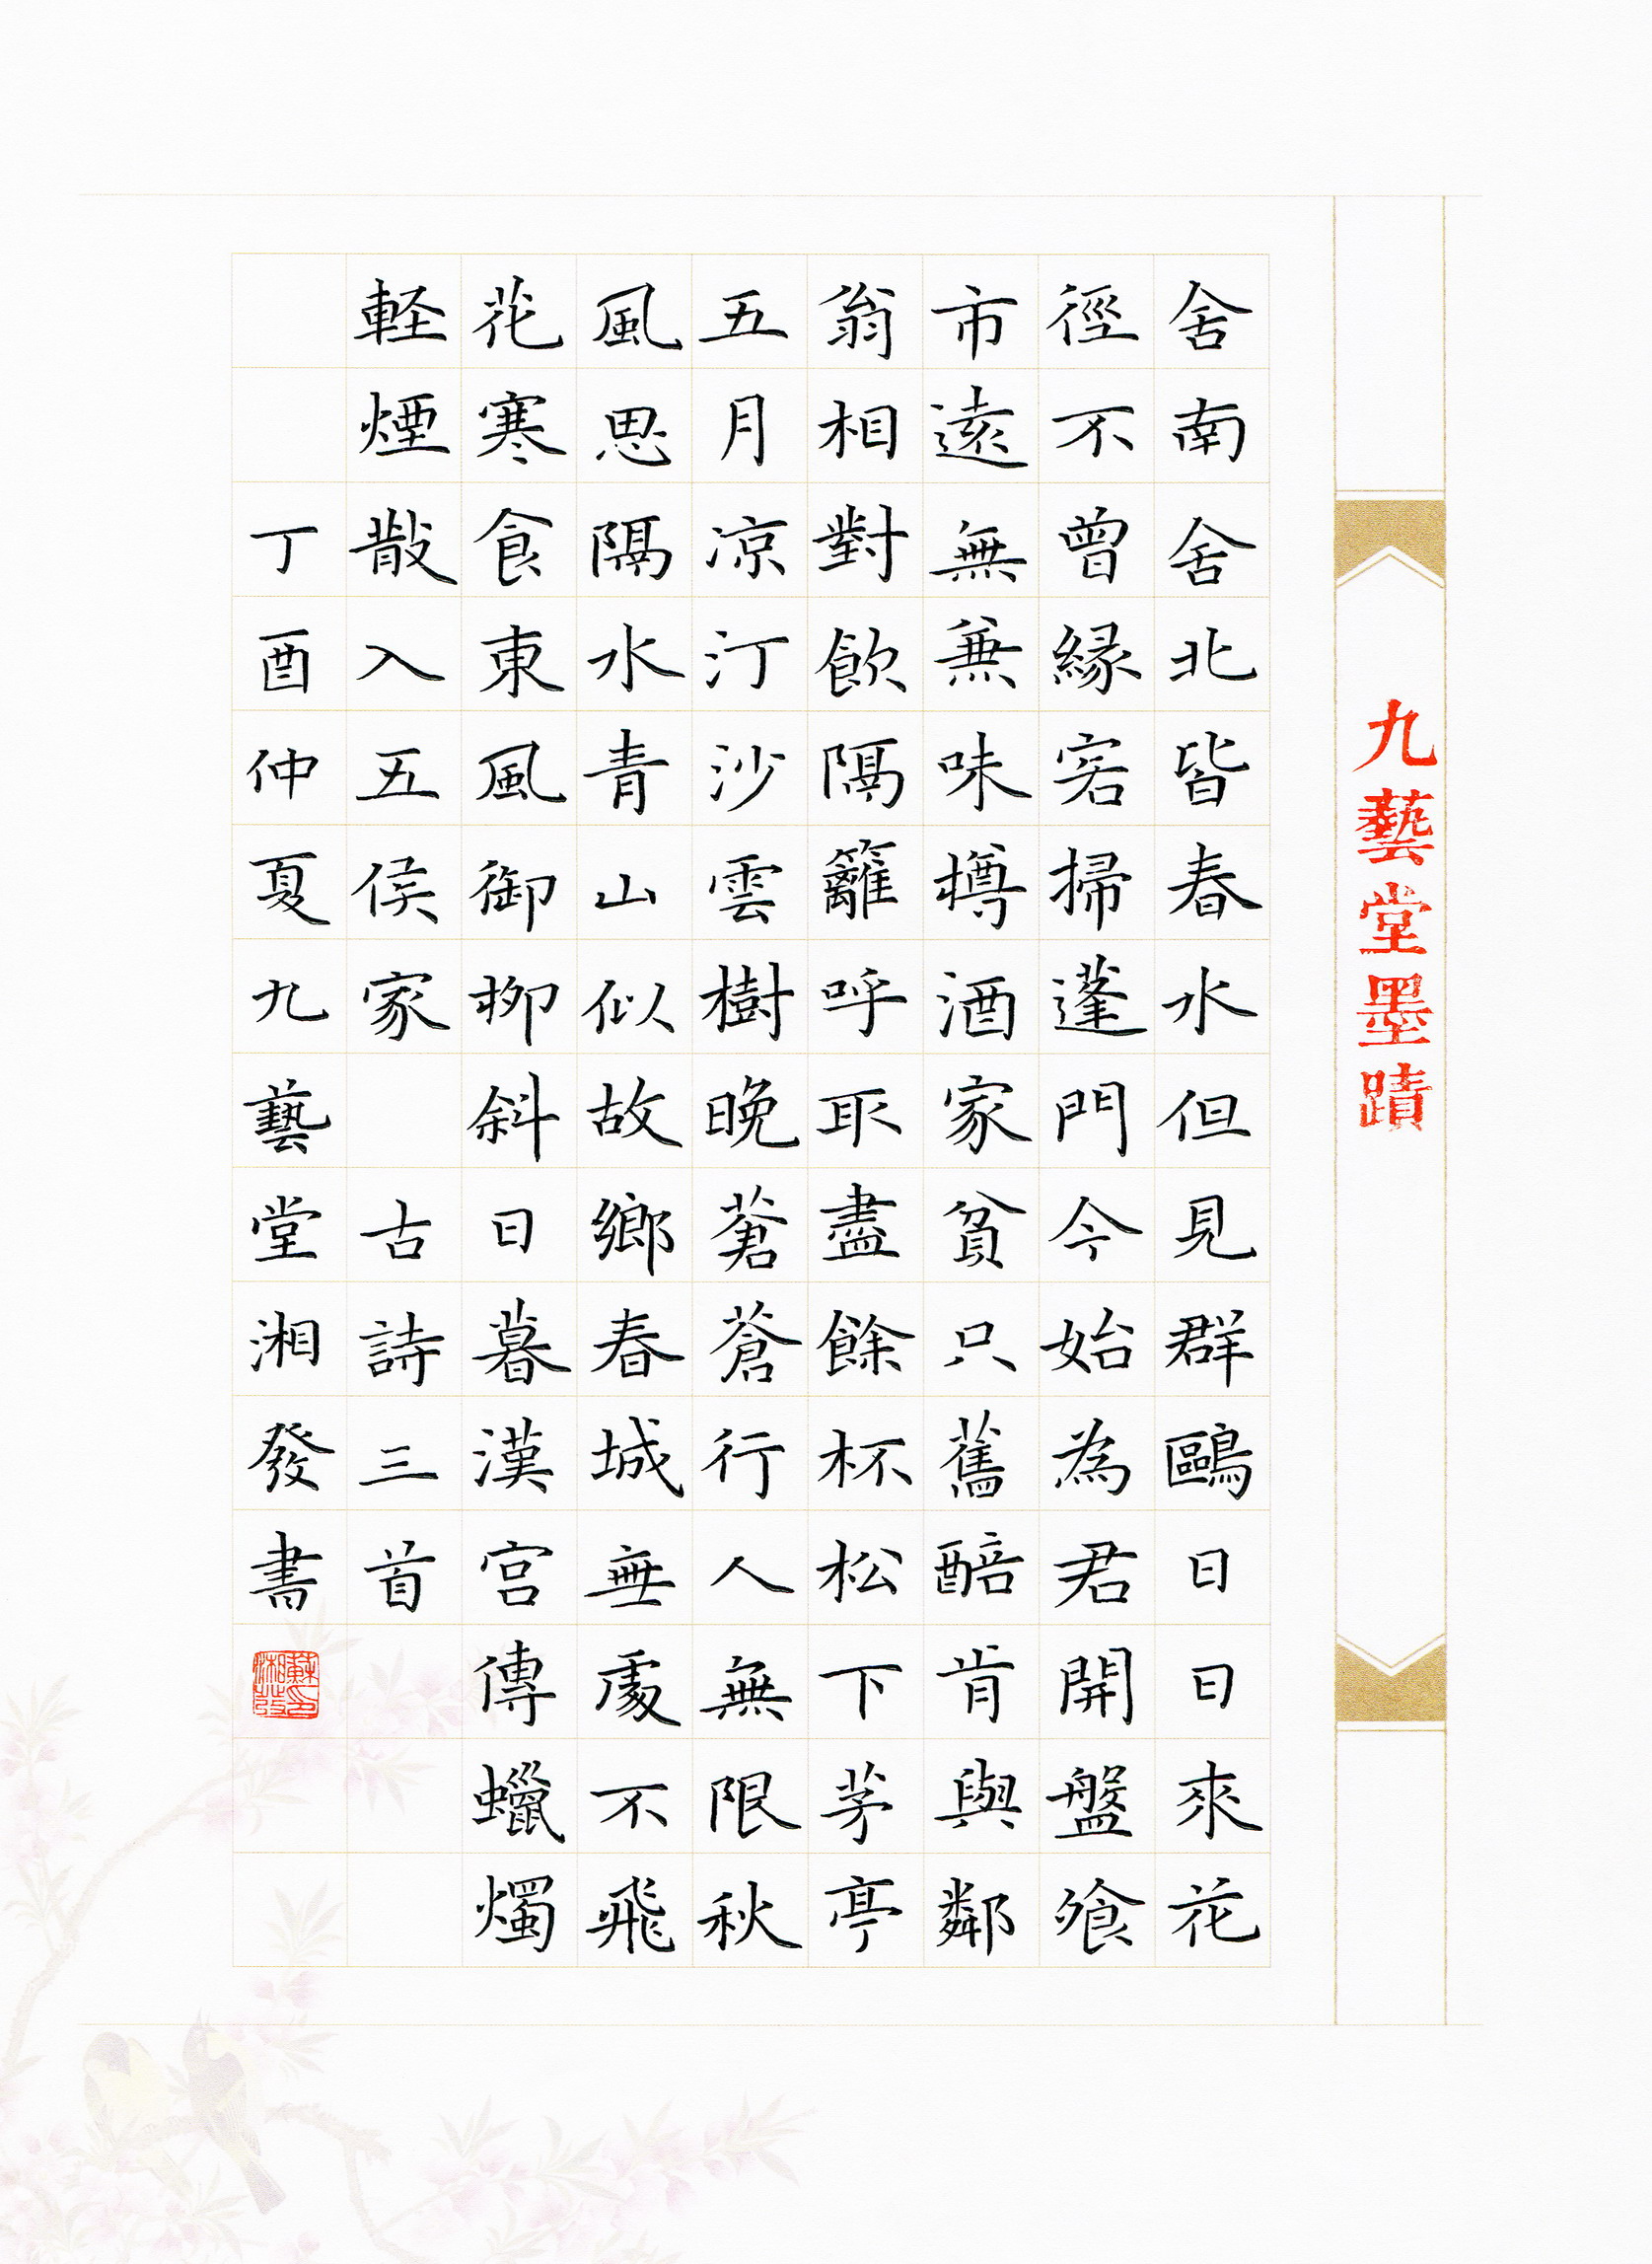 九藝堂墨蹟
舍南舍北皆春水但見群鷗日日來花
徑不曾縁客掃蓬門今始為君開盤飧
市遠無兼味樽酒家貧只舊醅肯與鄰
翁相對飲隔籬呼取盡餘杯松下茅亭
五月凉汀沙雲樹晚蒼蒼行人無限秋
風思隔水青山似故鄉春城無處不飛
花寒食東風御柳斜日暮漢宮傳蠟燭
軽煙散入五侯家 古詩三首
丁酉仲夏九藝堂湘發書
蘇印湘發